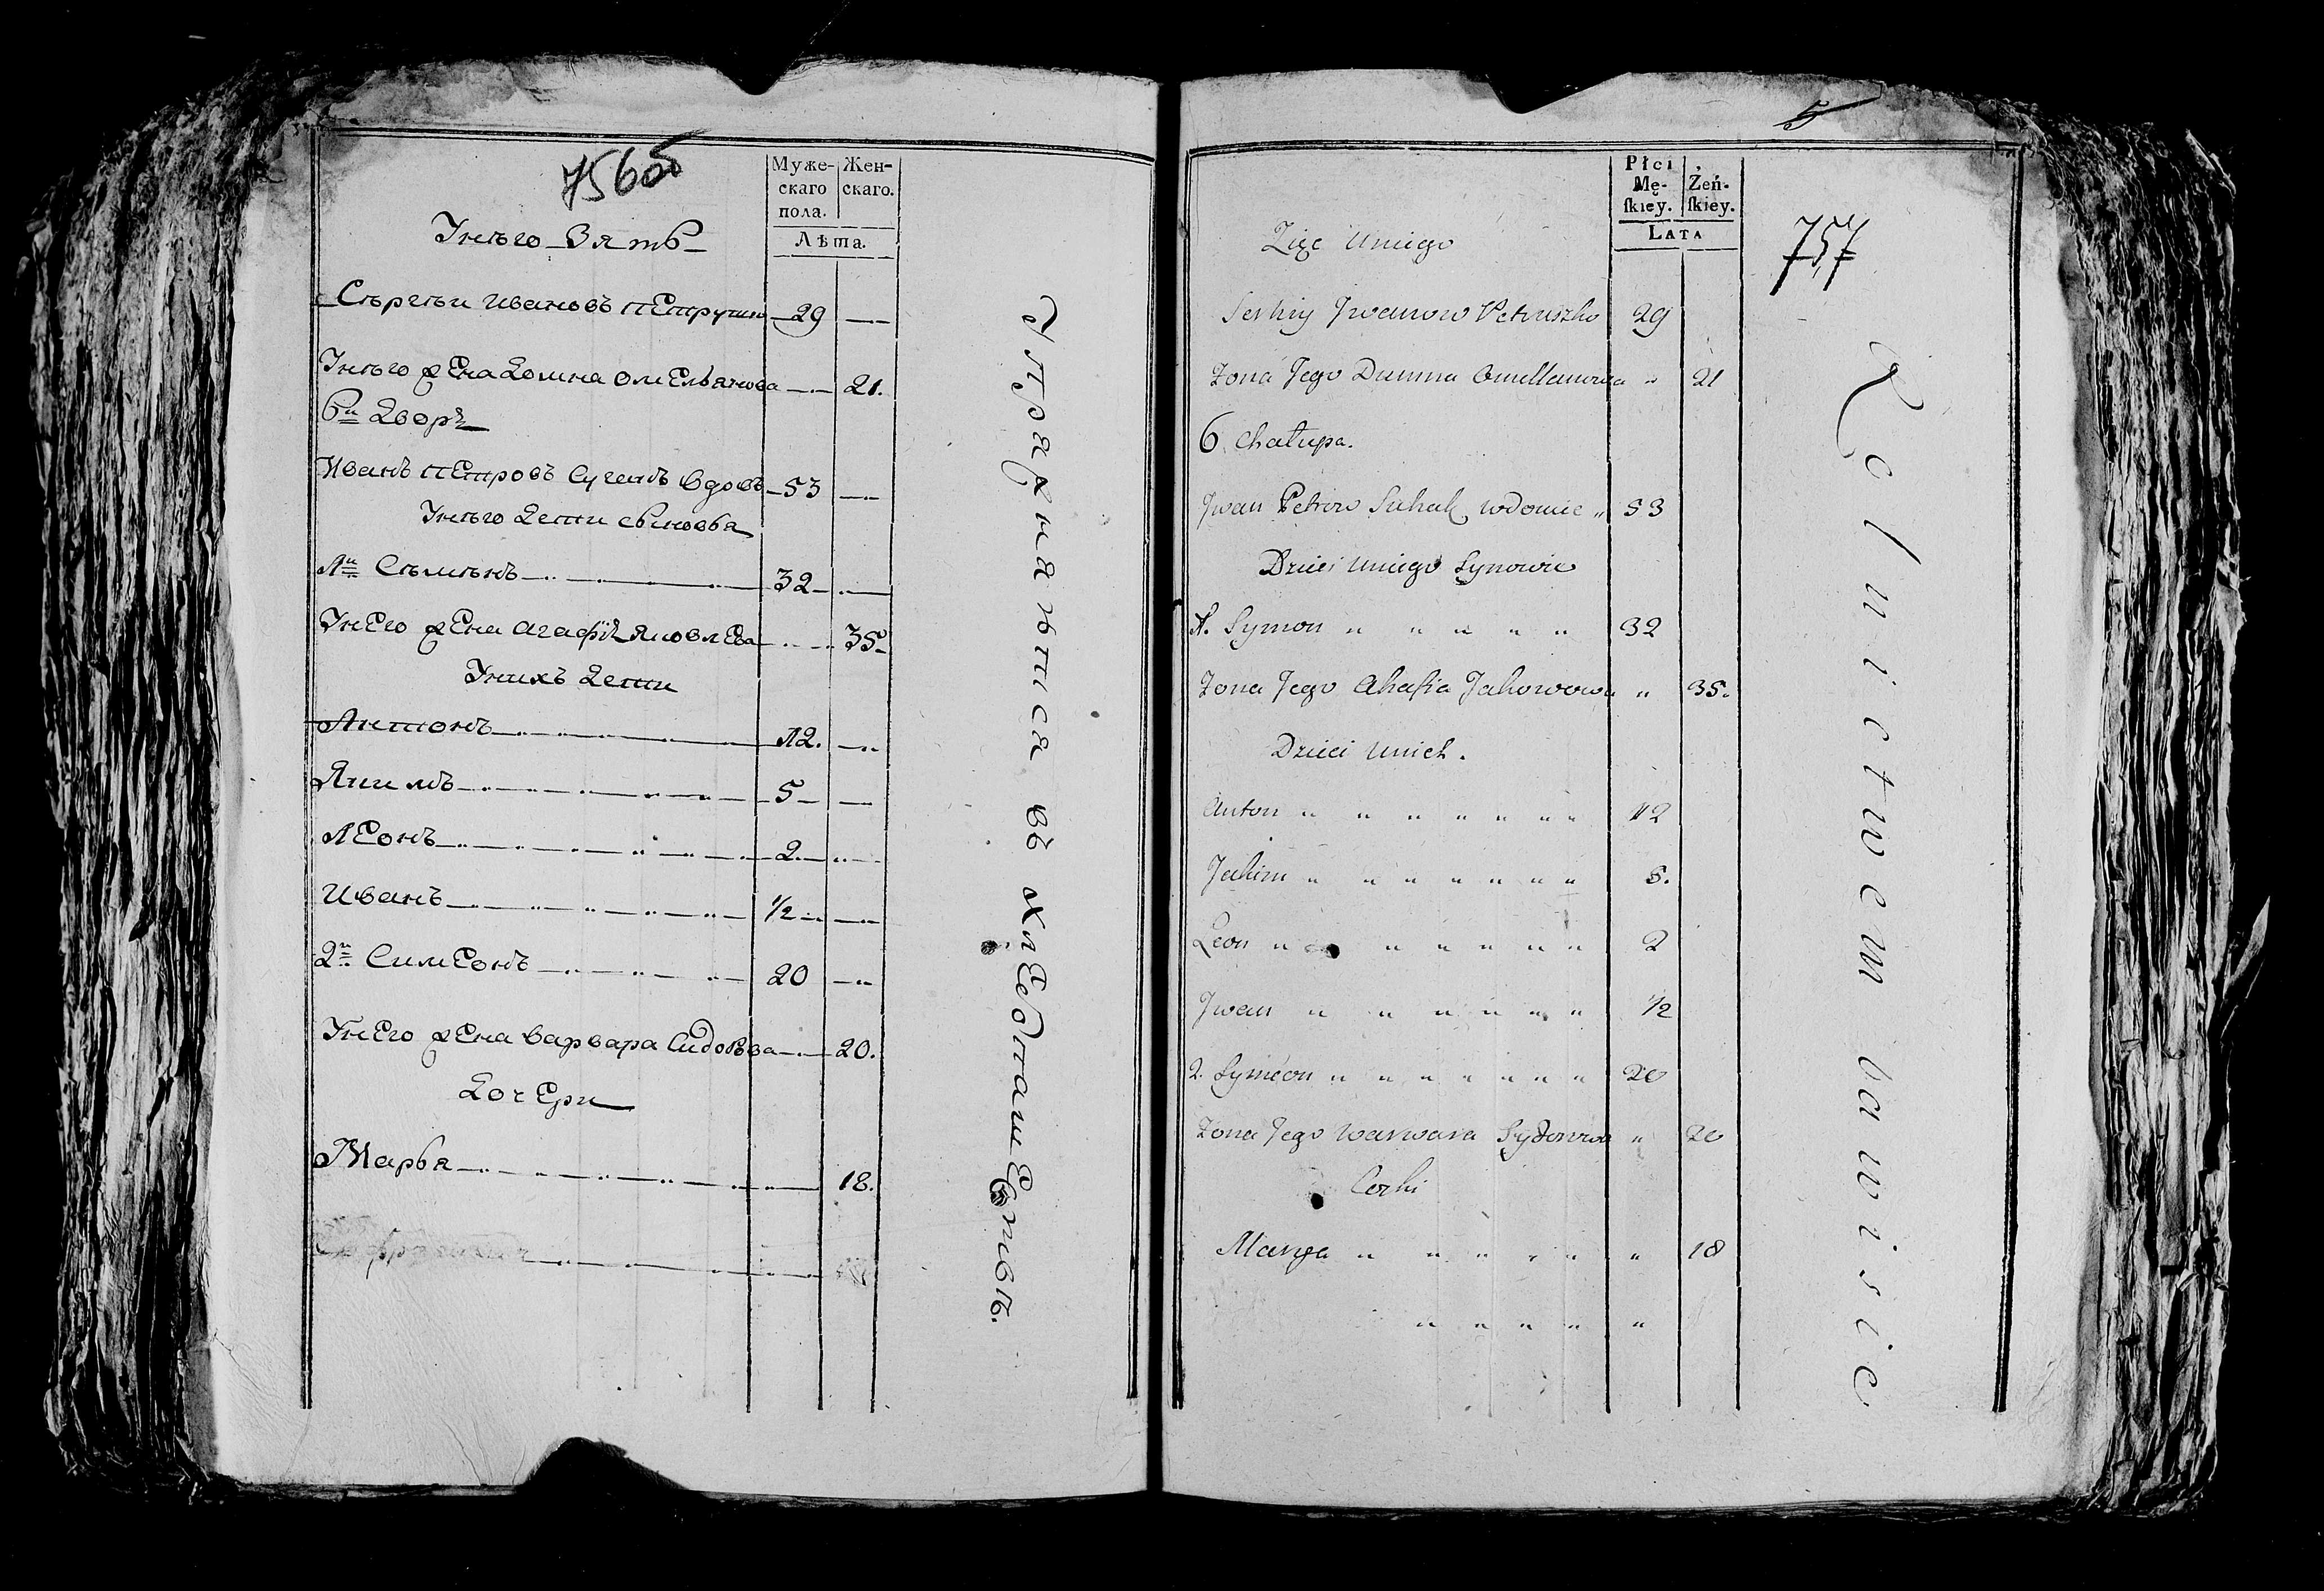 756об
Муже-
скаго
пола.
Жен-
скаго.
Лѣта.
Унѣго Зять
Сѣргѣи Ивановъ пЕтрушко 29
Унѣго жЕна Домна ОмЕльянова 21.
6й Дворъ
Иванъ пЕтровъ вдовъ 53
Унѣго Дети сыновья
1й Сѣмѣнъ 32
УнЕго жЕна Агафія ЯковлЕва 35
Унихъ Дети
Антонъ 12.
Якимъ 5
ЛЕонъ 2
Иванъ 1/2
2й СимЕонъ 20
УнЕго жЕна Варвара Сидорова 20.
ДочЕри
Марья 18.
Упражняѣтся въ хлЕбопашЕствѣ.
5
757
Płci
Mę-
ſkiey.
Żeń-
ſkiey.
LATA
Zięc Uniego
Serhiy Jwanow Petruszko 29
Zona Jego Dumna Omellanowa " 21
6. Chałupa.
Jwan Petrow wdowiec " 53
Dzieci Uniego Synowie
1. Symon " " " " " 32
Zona Jego Ahafia Jakowowa " 35.
Dzieci Unich.
Anton " " " " " " " 12
Jakim " " " " " " " 5.
Leon " " " " " " 2
Jwan " " " " " " 1/2
2. Symeon " " " " " " " 20
Zona Jego Warwara Sydorowa " 20
Corki
Marya " " " " " " 18
" " " " "
Rolnictwem bawi sie